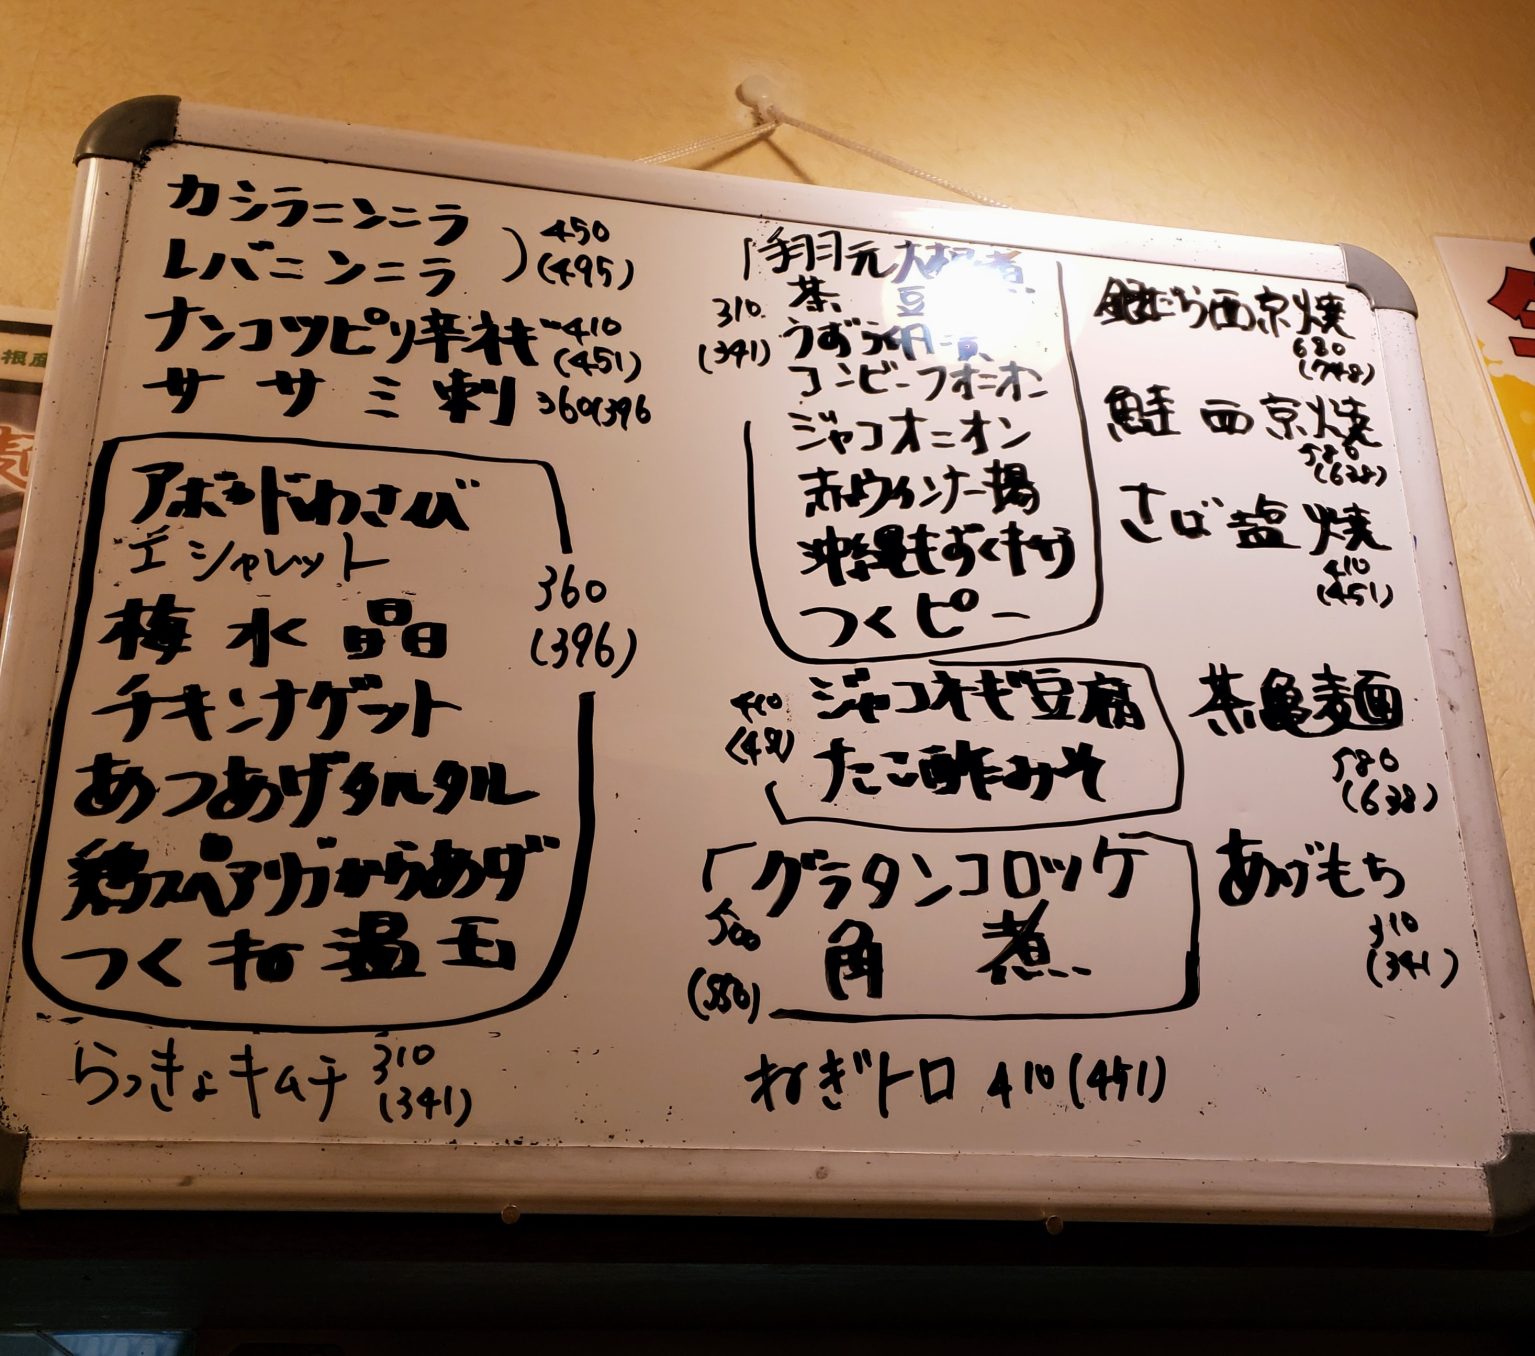 カシラニンニラ
レバニンニラ
450
(495)
ナンコツピリ辛ネギ 410
(451)
ササミ刺 360(396
アボカドわさび
エシャレット
梅水晶
チキンナゲット
あつあげタルタル
鶏スペアリブからあげ
つくね温玉
360
(396)
らっきょキムチ 310
(341)
手羽元大根煮
茶豆
うずら明煮
コンビーフオニオン
ジャコオニオン
赤ウインナー揚
沖縄もずくキムチ
つくピー
310
(341)
ジャコネギ豆腐
たこ酢みそ
410
(451)
グラタンコロッケ
角煮
500
(550)
ねぎトロ 410(451)
銀だら西京焼
680
(748)
鮭西京焼
580
(638)
さば塩焼
410
(451)
茶亀麺
580
(638)
あげもち
310
(341)